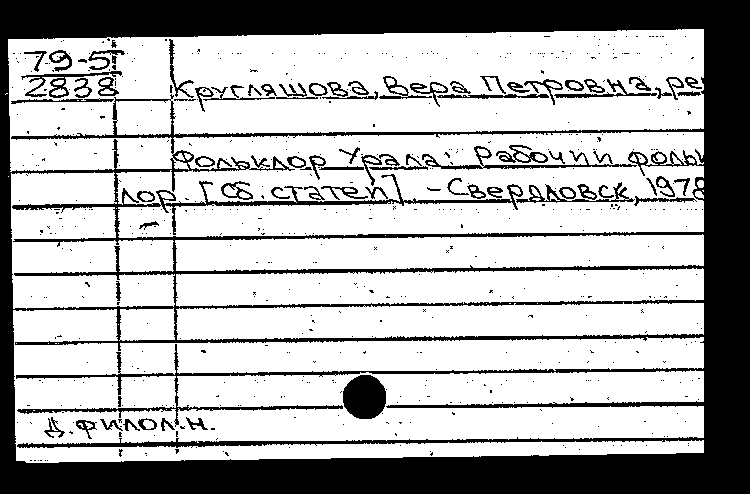 79-5
2838
Кругляшова, Вера Петровна, ре
Фольклор Урала: Рабочий фольк
лор. [Сб. статей] - Свердловск, 1978
Д. филол. н.